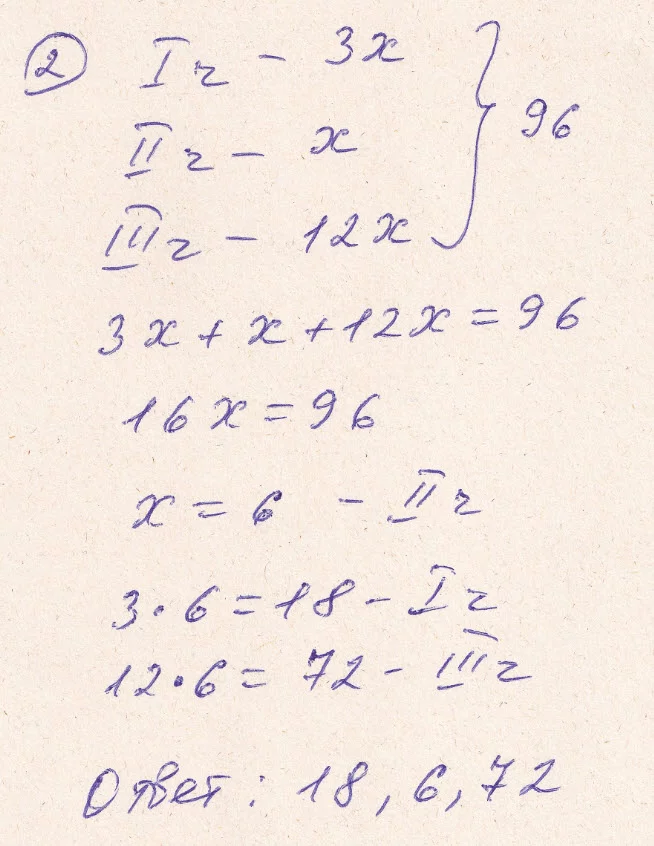 2 I ч - 3x
II ч - x } 96
III ч - 12x
3x + x + 12x = 96
16x = 96
x = 6 - II ч
3·6 = 18 - I ч
12·6 = 72 - III ч
Ответ: 18, 6, 72